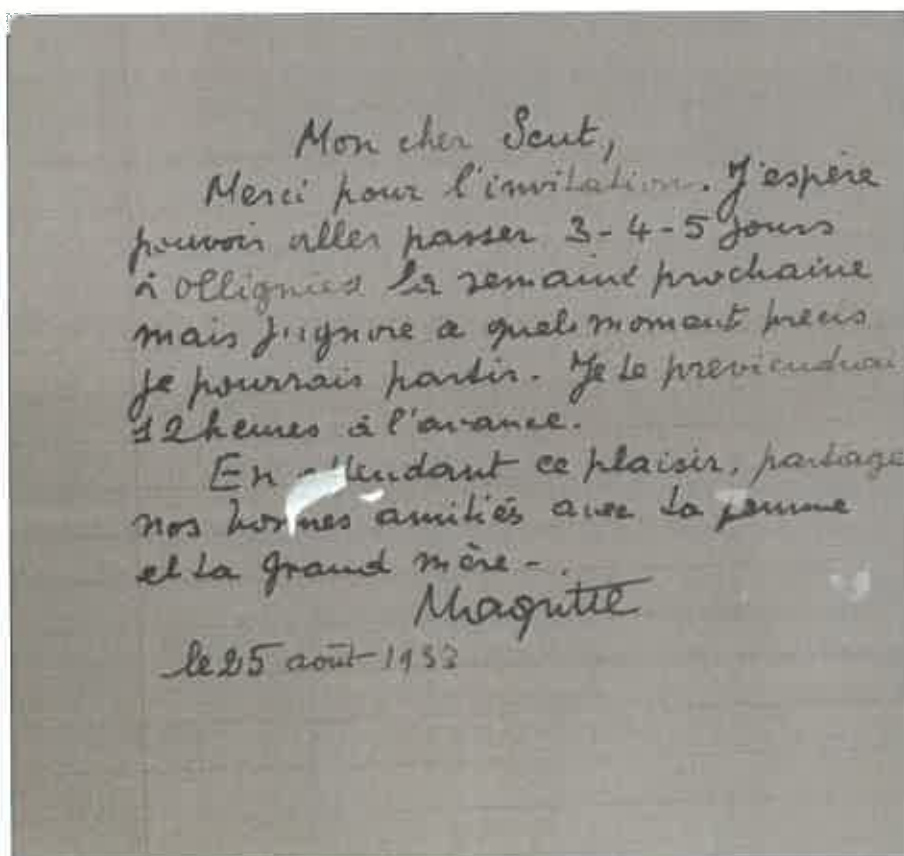 Mon cher Scut,
Merci pour l'invitation. J'espère
pouvoir aller passer 3-4-5 jours
à Ollignies la semaine prochaine
mais j'ignore à quel moment précis
je pourrais partir. Je te préviendrai
12 heures à l'avance.
En attendant ce plaisir, partage
nos bonnes amitiés avec ta femme
et ta grand mère -.
Magritte
le 25 août 1953